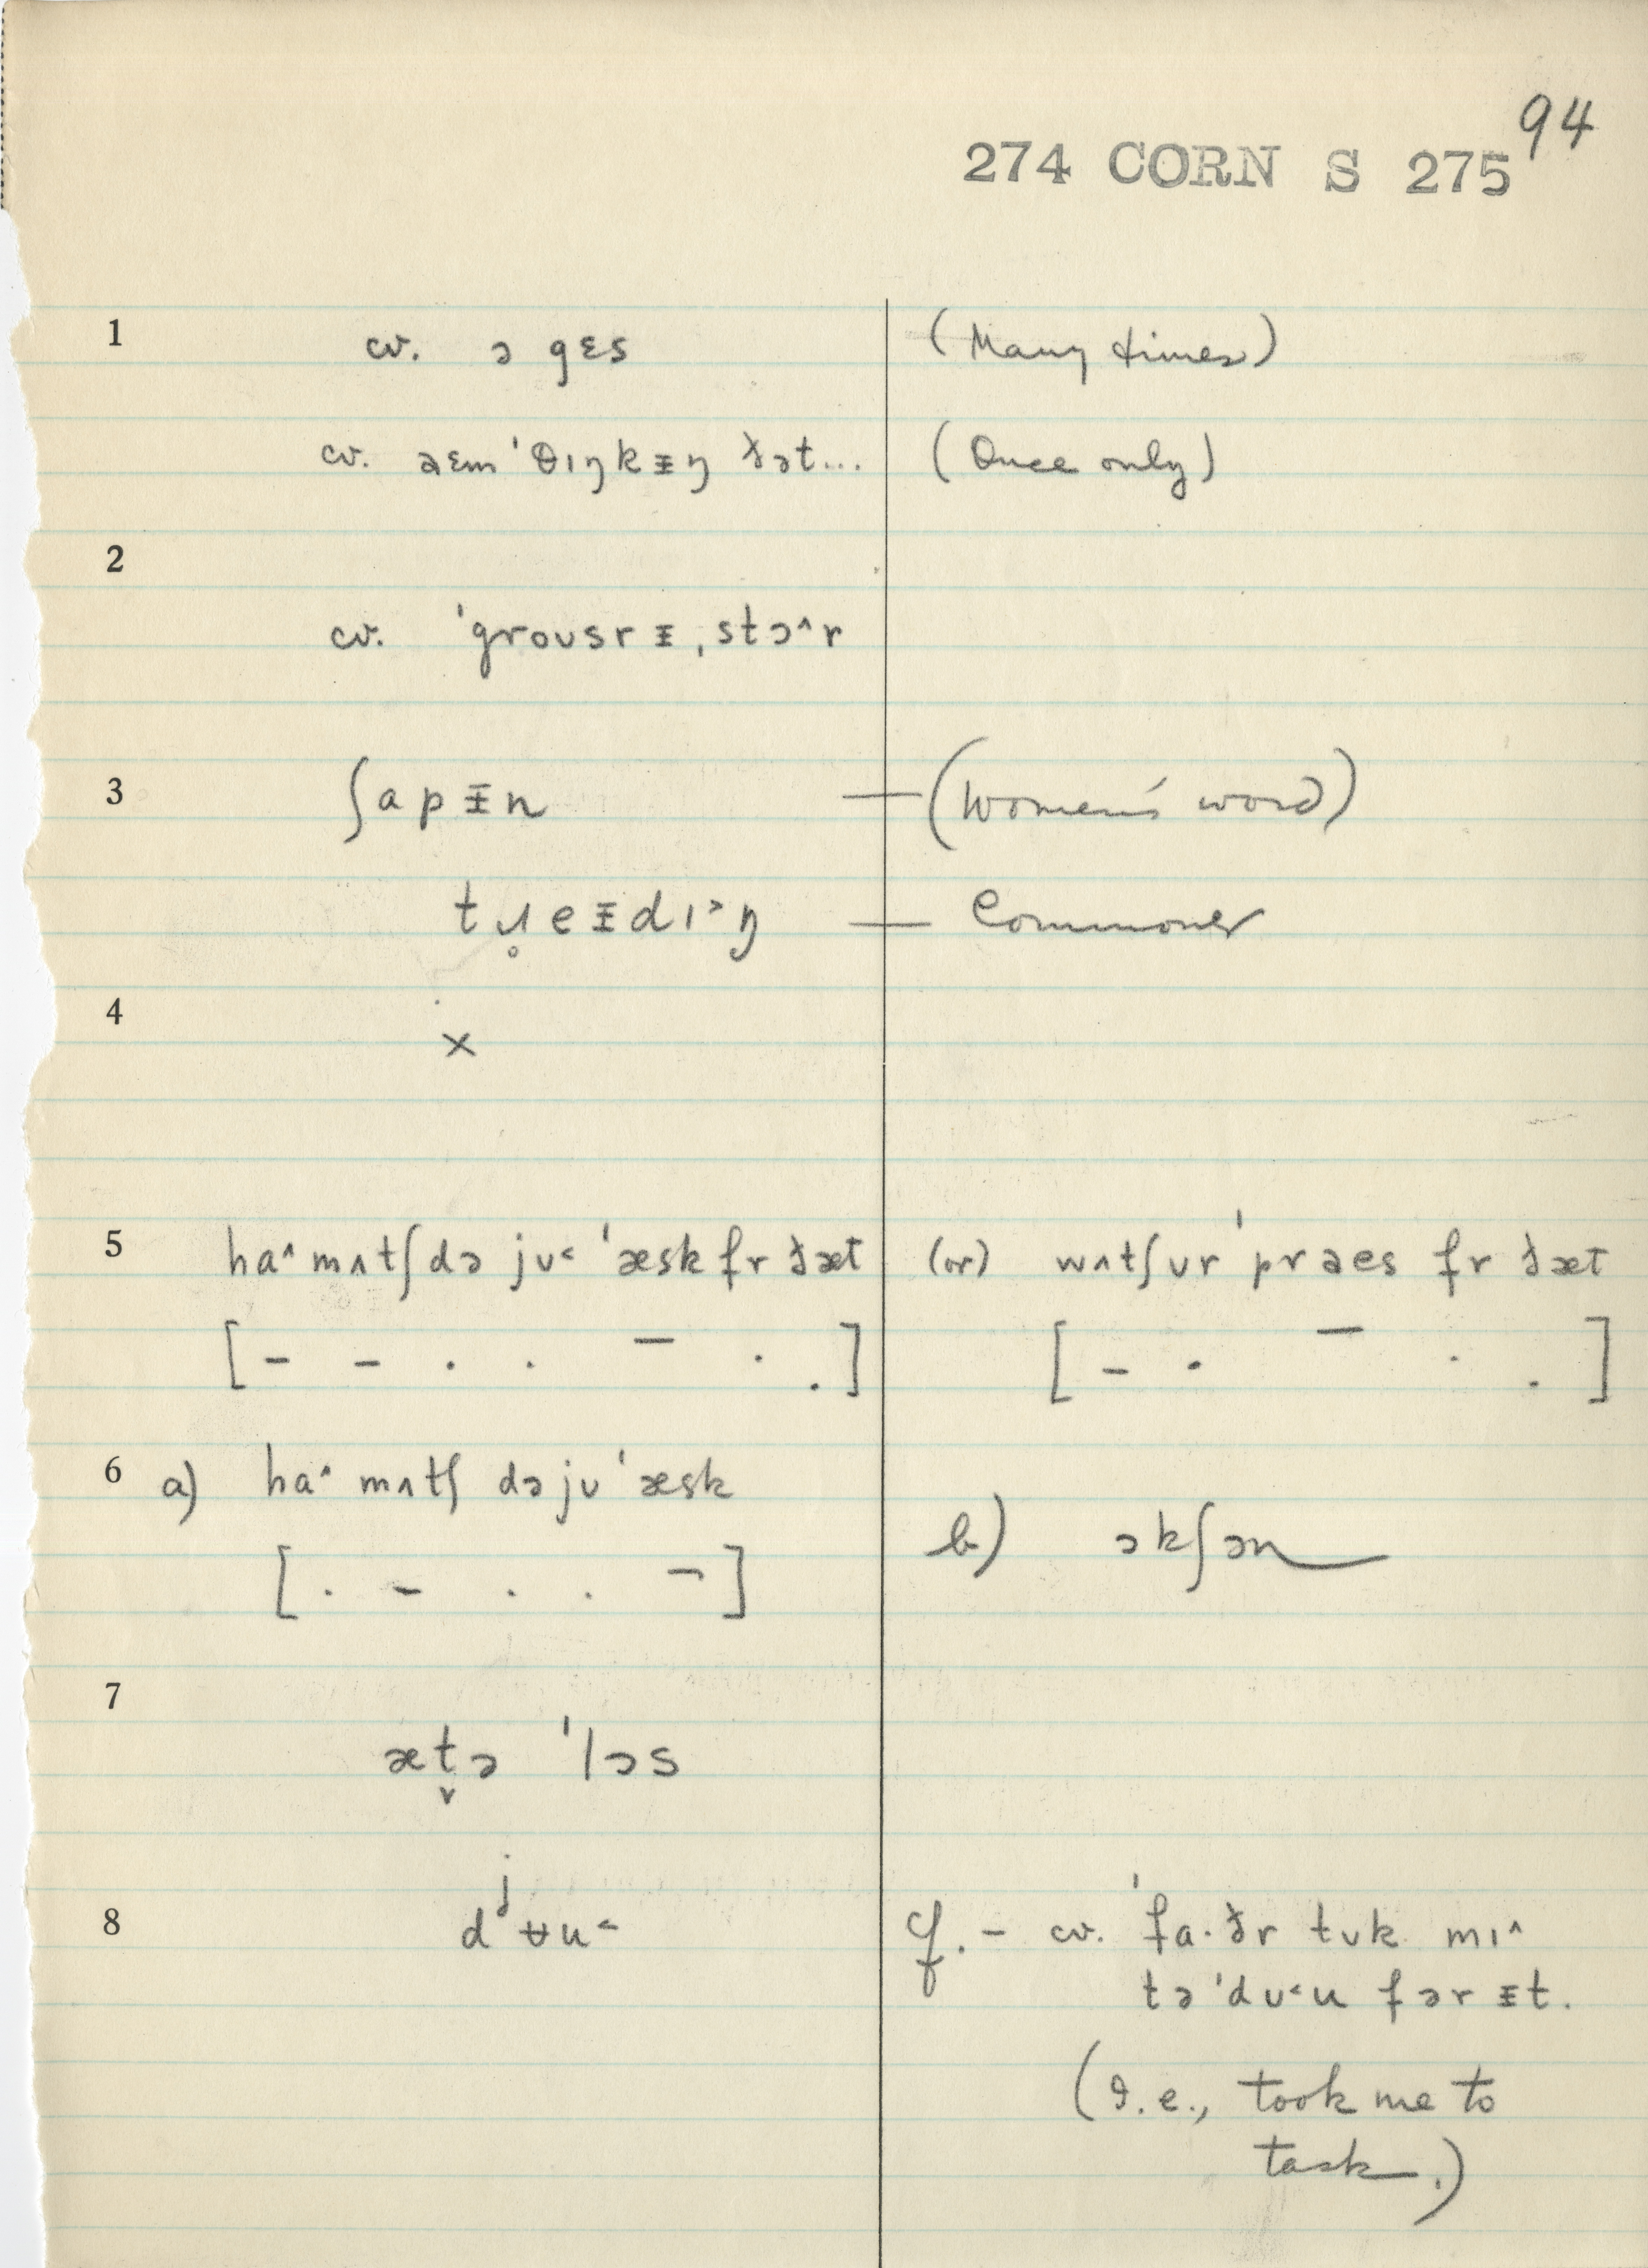 94
274 CORN S 275
1 cv. ə gɛs (Many times)
cv. aɛm ˈθɪŋkɪ̵ŋ ðət... (Once only)
2
cv. ˈgroʊsrɪ̵ˌstɔ^r
3 ʃapɪ̵n — (Women's word)
tɹ̥eɪ̵dɪ˃ŋ — Commoner
4
×
5 ha^ mʌtʃ də jʊ˂ ˈæsk fr ðæt (or) wʌtʃʊr ˈpraes fr ðæt
[ - - . . - . . ] [ - . - . . ]
6 a) ha^ mʌtʃ də jʊ ˈæsk
b) ɔkʃən
[ . - . . ¬ ]
7
æt̬ə ˈlɔs
8 dʲʉu˂ cf. - cv. ˈfa·ðr tʊk mɪ^
tə ˈdʊ˂u fər ɪ̵t.
(I.e., took me to
task.)